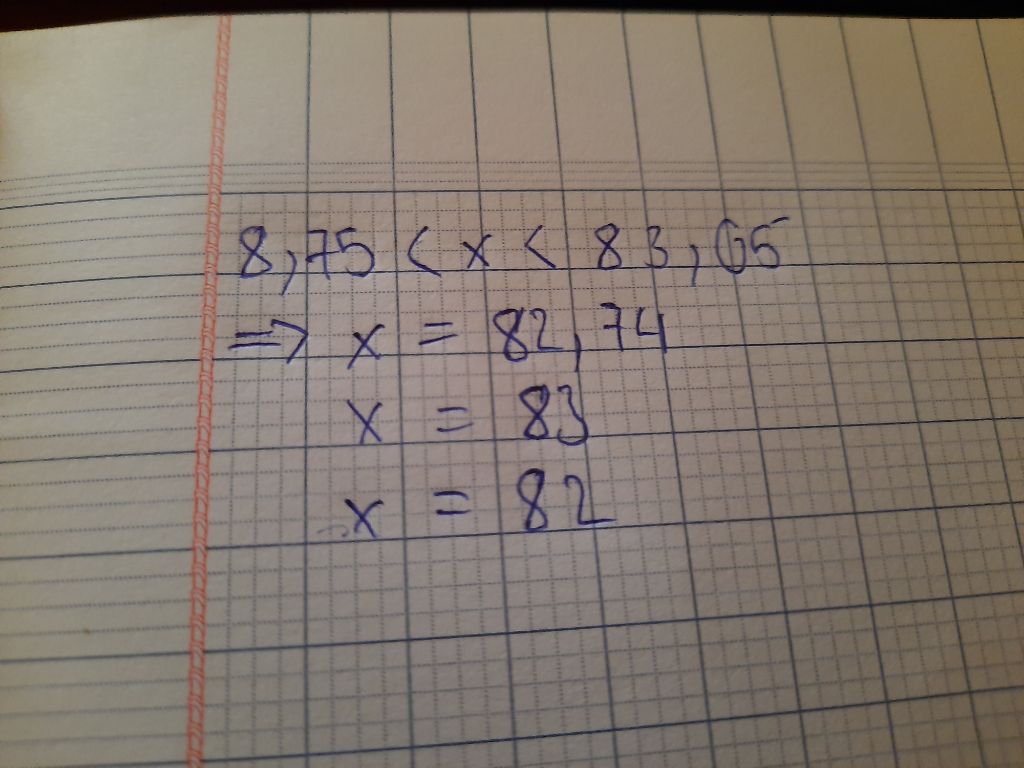 8,75 < x < 83,05
=> x = 82,74
x = 83
x = 82